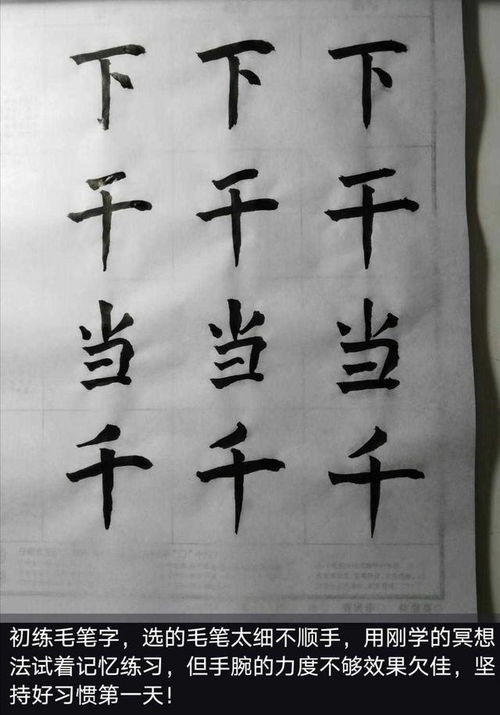 下下下
干干干
当当当
千千千
初练毛笔字，选的毛笔太细不顺手，用刚学的冥想
法试着记忆练习，但手腕的力度不够效果欠佳，坚
持好习惯第一天！